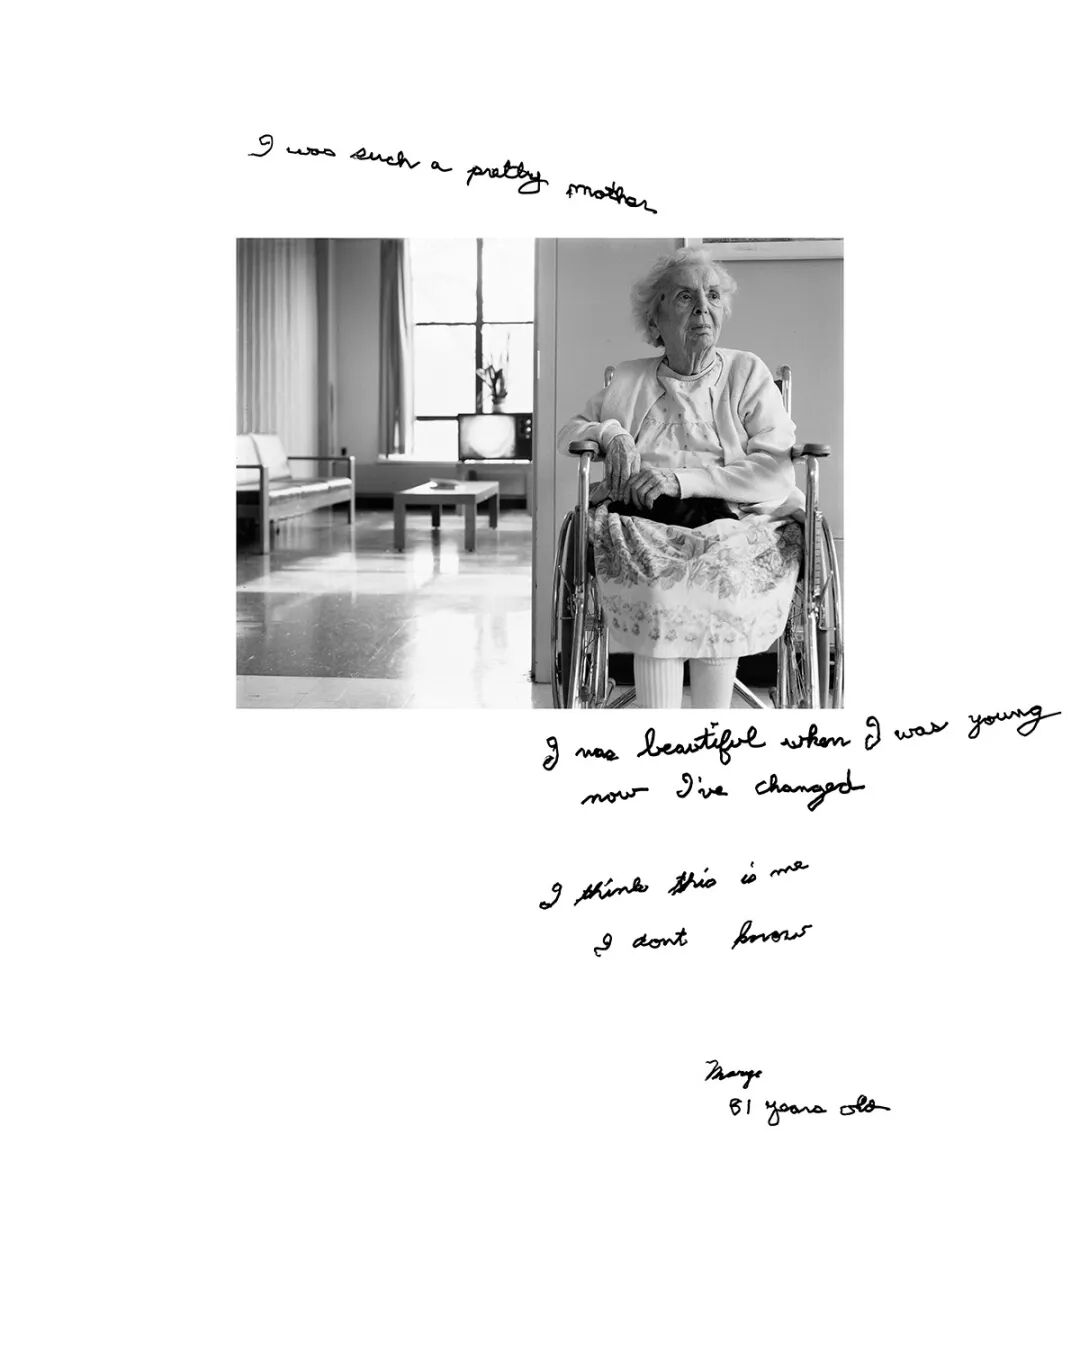 I was such a pretty mother
I was beautiful when I was young
now I've changed
I think this is me
I dont know
Marge
81 years old